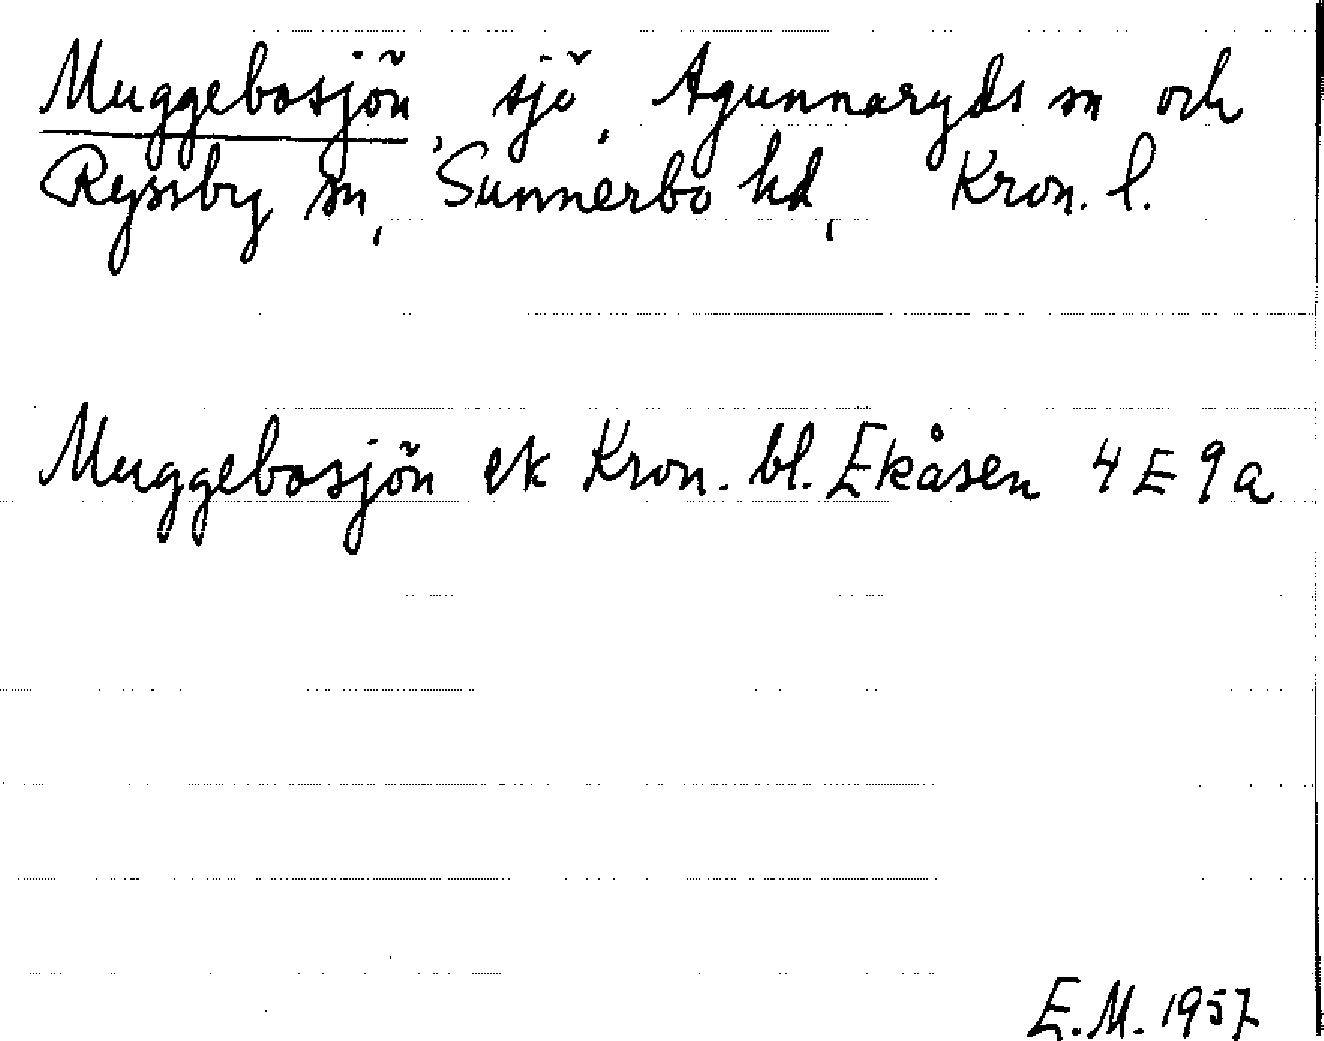 Muggebosjön, sjö, Agunnaryds sn och
Ryssby sn, Sunnerbo hd, Kron. l.
Muggebosjön ek Kron. bl. Ekåsen 4 E 9 a
E.M. 1957